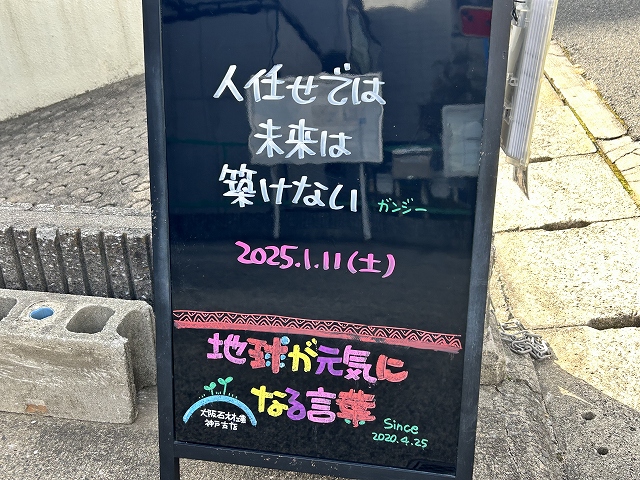 人任せでは
未来は
築けない ガンジー
2025.1.11(土)
地球が元気に
なる言葉
大阪石材工業
神戸支店
Since
2020.4.25